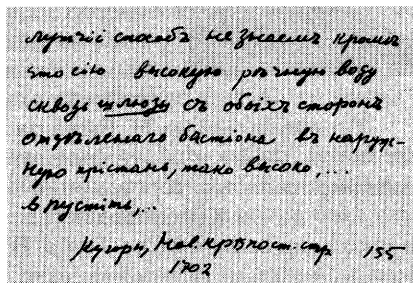 лутчiі способъ не знаемъ кромѣ
что сiю высокую рѣчную воду
сквозь шлюзы съ обоiхъ сторонъ
отдѣленаго бастiона въ наруж-
ную прiстань, тако высоко,...
впустiть,..
Кугорн, Нов. крѣпост. стр 155
1702